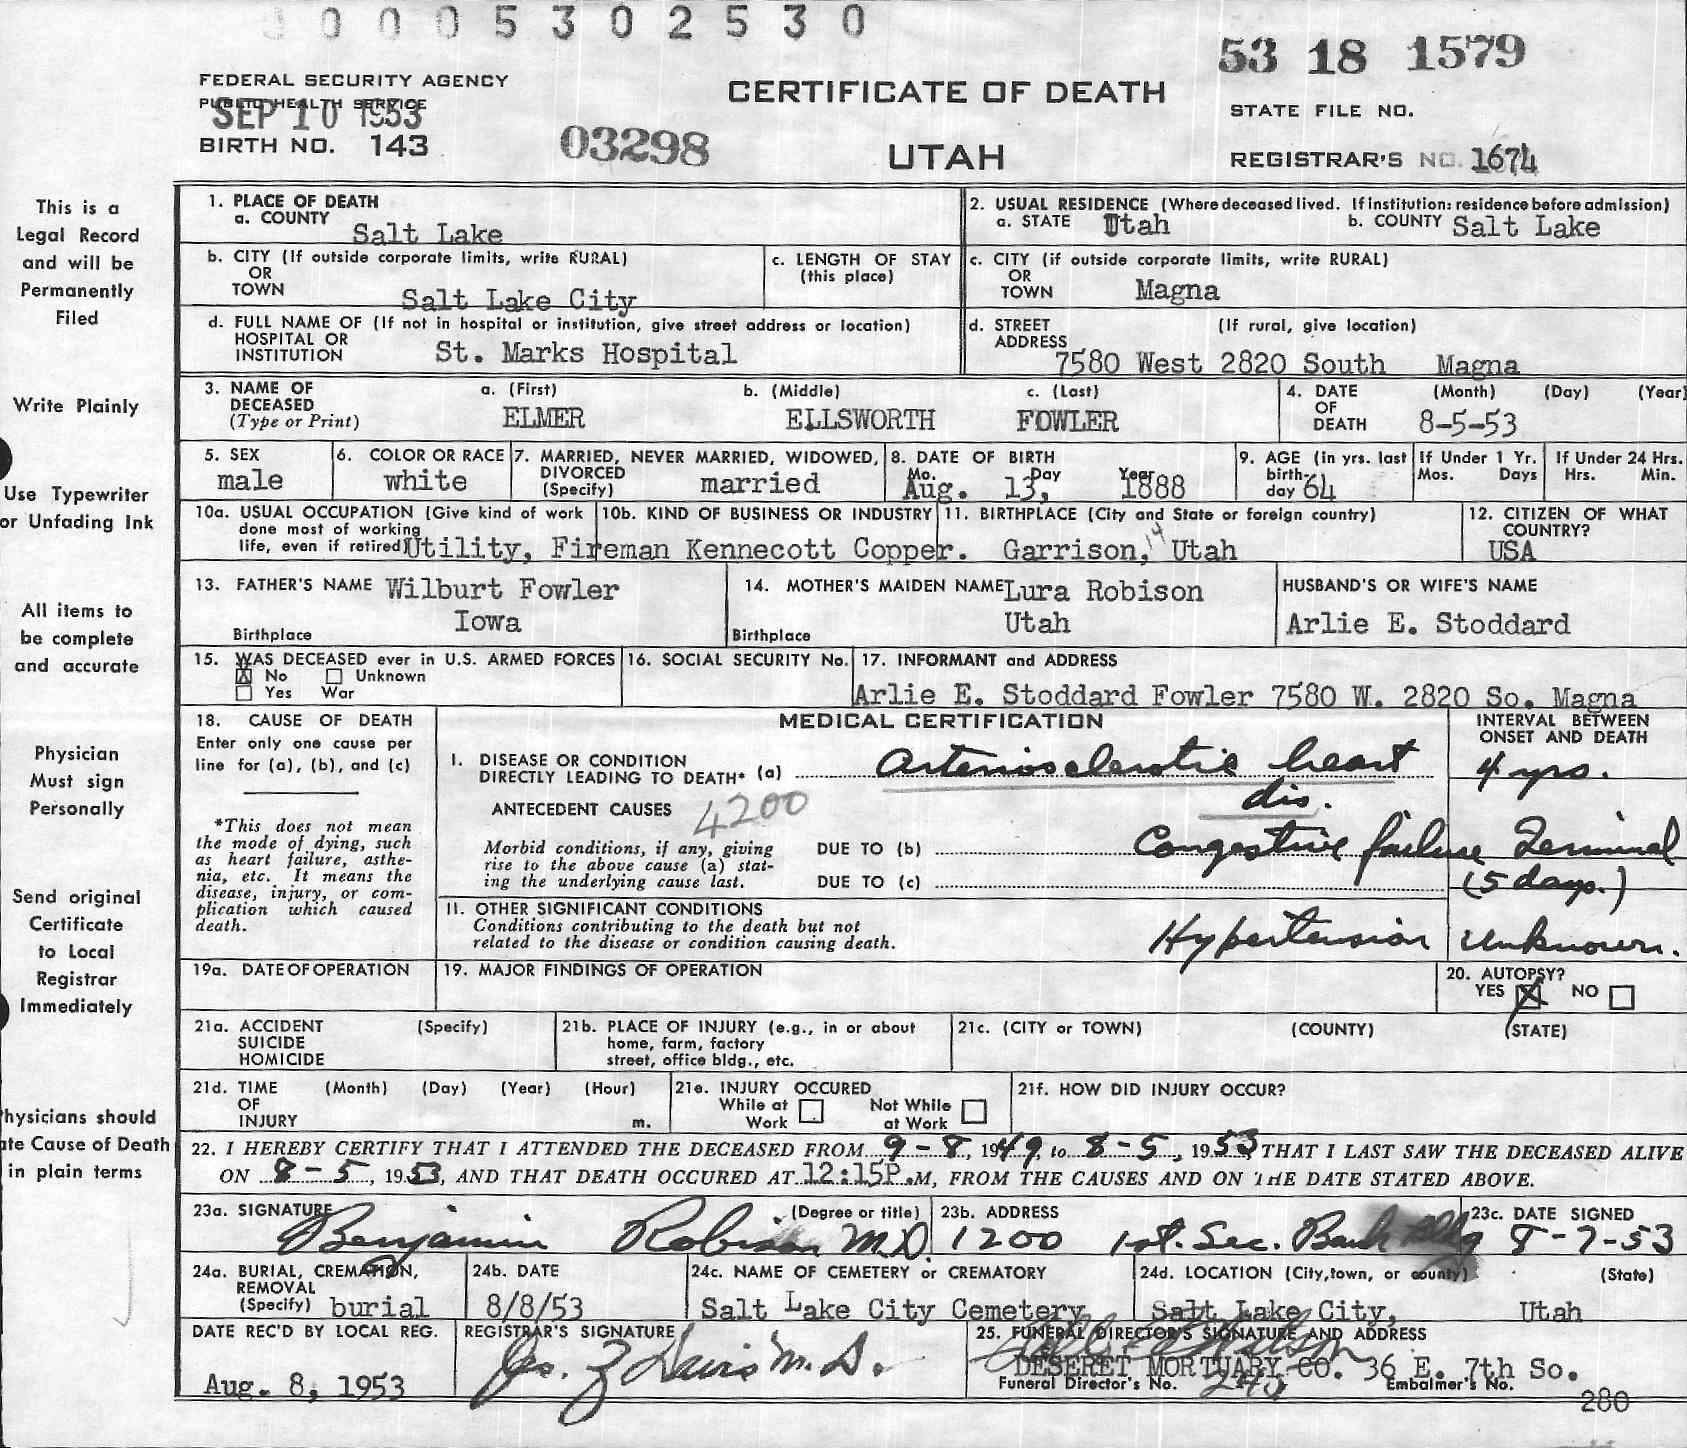 0 0 0 5 3 0 2 5 3 0
53 18 1579
FEDERAL SECURITY AGENCY
PUBLIC HEALTH SERVICE
SEP 10 1953
BIRTH NO. 143
03298
CERTIFICATE OF DEATH
UTAH
STATE FILE NO.
REGISTRAR'S NO. 1674
This is a
Legal Record
and will be
Permanently
Filed
Write Plainly
Use Typewriter
or Unfading Ink
All items to
be complete
and accurate
Physician
Must sign
Personally
Send original
Certificate
to Local
Registrar
Immediately
hysicians should
te Cause of Death
in plain terms
1. PLACE OF DEATH
a. COUNTY
Salt Lake
2. USUAL RESIDENCE (Where deceased lived. If institution: residence before admission)
a. STATE Utah b. COUNTY Salt Lake
b. CITY (If outside corporate limits, write RURAL)
OR
TOWN Salt Lake City
c. LENGTH OF STAY
(this place)
c. CITY (if outside corporate limits, write RURAL)
OR
TOWN Magna
d. FULL NAME OF (If not in hospital or institution, give street address or location)
HOSPITAL OR
INSTITUTION St. Marks Hospital
d. STREET (If rural, give location)
ADDRESS
7580 West 2820 South Magna
3. NAME OF a. (First) b. (Middle) c. (Last)
DECEASED
(Type or Print) ELMER ELLSWORTH FOWLER
4. DATE (Month) (Day) (Year)
OF
DEATH 8-5-53
5. SEX
male
6. COLOR OR RACE
white
7. MARRIED, NEVER MARRIED, WIDOWED,
DIVORCED
(Specify) married
8. DATE OF BIRTH
Mo. Day Year
Aug. 13, 1888
9. AGE (in yrs. last
birth-
day 64
If Under 1 Yr.
Mos. Days
If Under 24 Hrs.
Hrs. Min.
10a. USUAL OCCUPATION (Give kind of work
done most of working
life, even if retired) Utility, Fireman
10b. KIND OF BUSINESS OR INDUSTRY
Kennecott Copper.
11. BIRTHPLACE (City and State or foreign country)
Garrison, Utah
12. CITIZEN OF WHAT
COUNTRY?
USA
13. FATHER'S NAME Wilburt Fowler
Iowa
Birthplace
14. MOTHER'S MAIDEN NAME Lura Robison
Utah
Birthplace
HUSBAND'S OR WIFE'S NAME
Arlie E. Stoddard
15. WAS DECEASED ever in U.S. ARMED FORCES
X No Unknown
Yes War
16. SOCIAL SECURITY No.
17. INFORMANT and ADDRESS
Arlie E. Stoddard Fowler 7580 W. 2820 So. Magna
18. CAUSE OF DEATH
Enter only one cause per
line for (a), (b), and (c)
*This does not mean
the mode of dying, such
as heart failure, asthe-
nia, etc. It means the
disease, injury, or com-
plication which caused
death.
MEDICAL CERTIFICATION
INTERVAL BETWEEN
ONSET AND DEATH
I. DISEASE OR CONDITION
DIRECTLY LEADING TO DEATH* (a) Arteriosclerotic heart
dis.
4 yrs.
ANTECEDENT CAUSES 4200
Morbid conditions, if any, giving
rise to the above cause (a) stat-
ing the underlying cause last.
DUE TO (b) Congestive failure Terminal
DUE TO (c) (5 days.)
II. OTHER SIGNIFICANT CONDITIONS
Conditions contributing to the death but not
related to the disease or condition causing death.
Hypertension Unknown.
19a. DATE OF OPERATION
19. MAJOR FINDINGS OF OPERATION
20. AUTOPSY?
YES X NO
21a. ACCIDENT (Specify)
SUICIDE
HOMICIDE
21b. PLACE OF INJURY (e.g., in or about
home, farm, factory
street, office bldg., etc.
21c. (CITY or TOWN) (COUNTY) (STATE)
21d. TIME (Month) (Day) (Year) (Hour)
OF
INJURY m.
21e. INJURY OCCURED
While at Not While
Work at Work
21f. HOW DID INJURY OCCUR?
22. I HEREBY CERTIFY THAT I ATTENDED THE DECEASED FROM 9-8, 1949, to 8-5, 1953, THAT I LAST SAW THE DECEASED ALIVE
ON 8-5, 1953, AND THAT DEATH OCCURED AT 12:15P.M, FROM THE CAUSES AND ON THE DATE STATED ABOVE.
23a. SIGNATURE (Degree or title)
Benjamin Robison M.D.
23b. ADDRESS
1200 1st. Sec. Bank Bldg
23c. DATE SIGNED
8-7-53
24a. BURIAL, CREMATION,
REMOVAL
(Specify) burial
24b. DATE
8/8/53
24c. NAME OF CEMETERY or CREMATORY
Salt Lake City Cemetery
24d. LOCATION (City, town, or county) (State)
Salt Lake City, Utah
DATE REC'D BY LOCAL REG.
Aug. 8, 1953
REGISTRAR'S SIGNATURE
Jas. Z Davis M.D.
25. FUNERAL DIRECTOR'S SIGNATURE AND ADDRESS
DESERET MORTUARY CO. 36 E. 7th So.
Funeral Director's No. Embalmer's No.
280